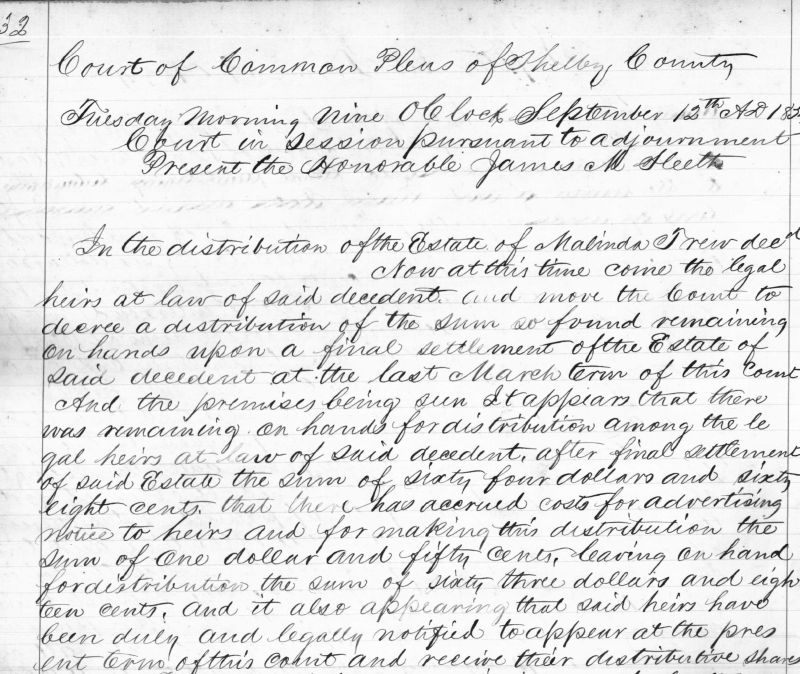 32
Court of Common Pleas of Shelby County
Tuesday Morning Nine O Clock September 12th AD 185
Court in session pursuant to adjournment
Present the Honorable James M Sleeth
In the distribution of the Estate of Malinda Trew decd
Now at this time come the legal
heirs at law of said decedent. and move the Court to
decree a distribution of the sum so found remaining
on hands upon a final settlement of the Estate of
said decedent at the last March term of this Court
And the premises being seen It appears that there
was remaining on hands for distribution among the le
gal heirs at law of said decedent, after final settlement
of said Estate the sum of sixty four dollars and sixty
eight cents. that there has accrued costs for advertising
notice to heirs and for making this distribution the
sum of One dollar and fifty cents, leaving on hand
for distribution the sum of sixty three dollars and eigh
teen cents. and it also appearing that said heirs have
been duly and legally notified to appear at the pres
ent term of this court and receive their distributive shares